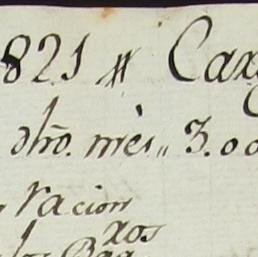 1821 # Cax
dho. mès,, 3.00
racion
xos